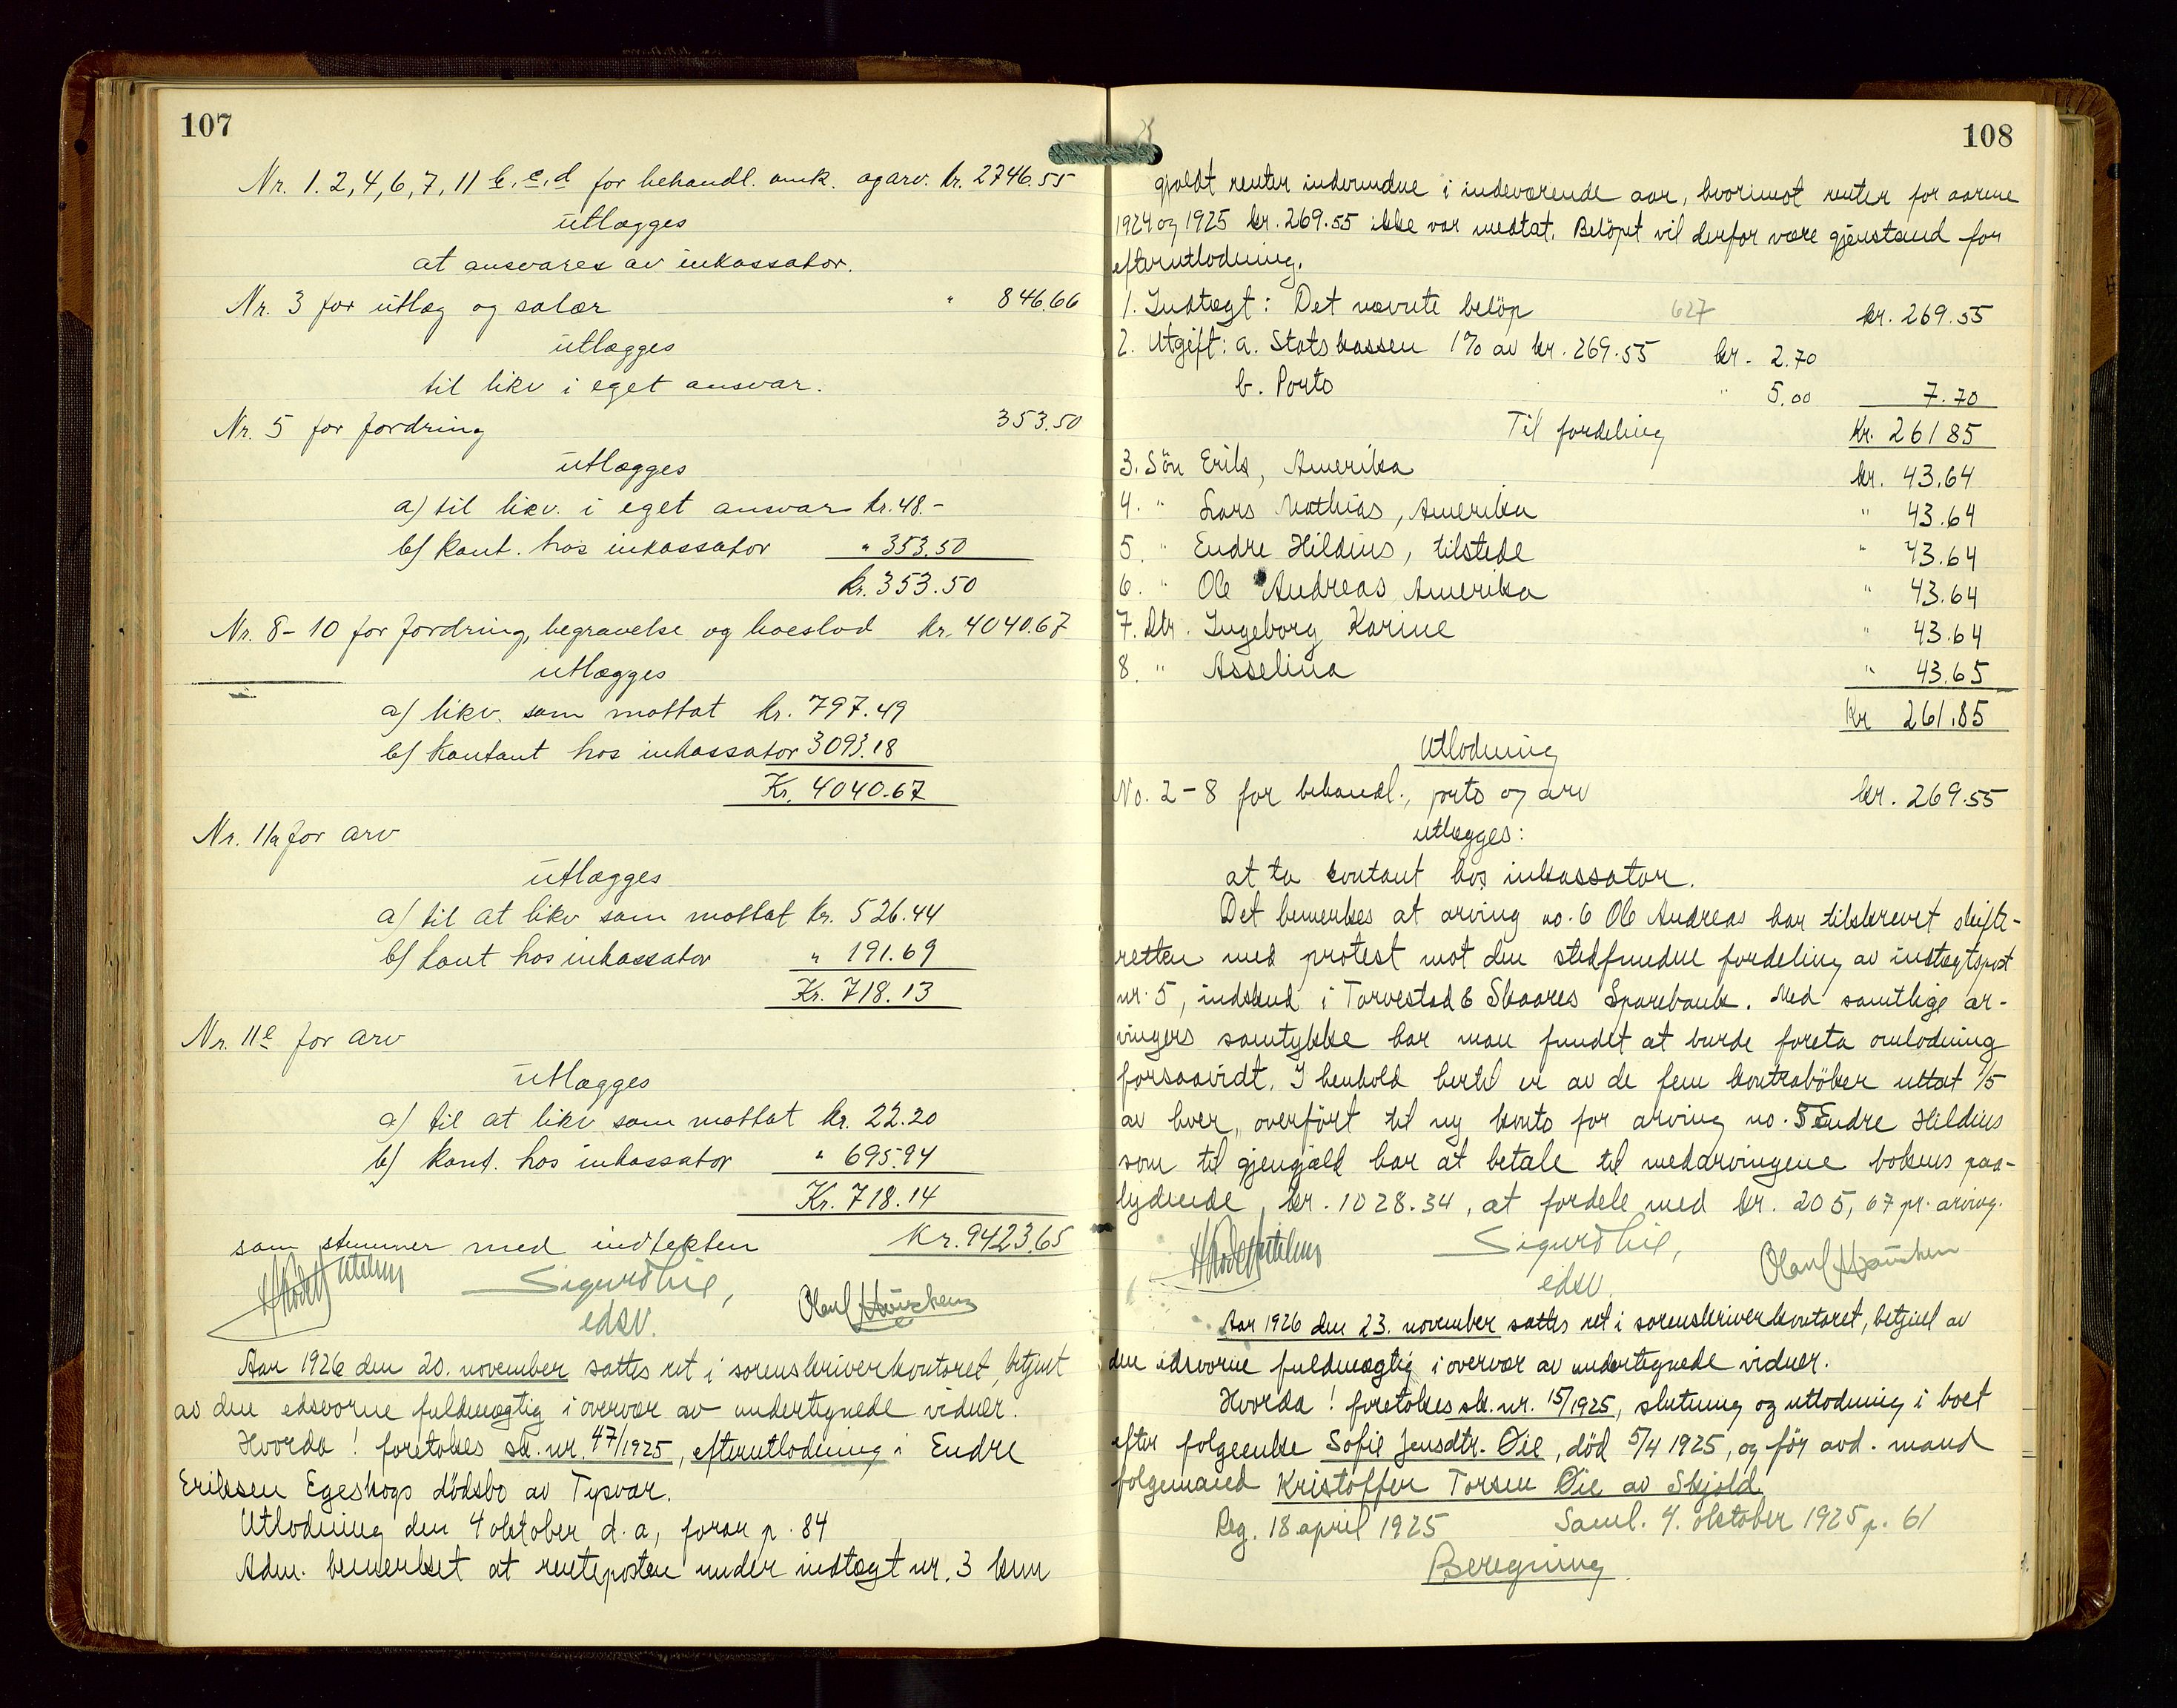 107
Nr. 1. 2, 4, 6, 7, 11 b, c, d for behandl. omk. og arv. kr. 2746.55
utlægges
at ansvares av inkassator.
Nr. 3 for utlæg og salær " 846.66
utlægges
til likv i eget ansvar.
Nr. 5 for fordring 353.50
utlægges
a) til likv. i eget ansvar kr. 48.-
b) kont. hos inkassator " 353.50
kr. 353.50
Nr. 8-10 for fordring, begravelse og hoeslod kr. 4040.67
utlægges
a) likv. som mottat kr. 797.49
b) kontant hos inkassator 3093.18
Kr. 4040.67
Nr. 11a for arv
utlægges
a) til at likv som mottat kr. 526.44
b) kont hos inkassator " 191.69
Kr. 718.13
Nr. 11e for arv
utlægges
a) til at likv som mottat kr. 22.20
b) kont. hos inkassator " 695.94
Kr. 718.14
som stemmer med indtekten Kr. 9423.65
Sigurd Lie,
edsv.
Aar 1926 den 20. november sattes ret i sorenskriverkontoret, betjent
av den edsvorne fuldmægtig i overvær av undertegnede vidner.
Hvorda! foretokes sk. nr. 47/1925, efterutlodning i Endre
Eriksen Egeskogs dödsbo av Tysvær.
Utlodning den 4 oktober d. a, foran p. 84
Adm. bemerket at renteposten under indtægt nr. 3 kun
108
gjaldt renter indvundne i indeværende aar, hvorimot renter for aarene
1924 og 1925 kr. 269.55 ikke var medtat. Belöpet vil derfor være gjenstand for
efterutlodning.
1. Indtægt: Det nævnte belöp 627 kr. 269.55
2. Utgift: a. Statskassen 1% av kr. 269.55 kr. 2.70
b. Porto " 5.00 7.70
Til fordeling Kr. 261 85
3. Sön Erik, Amerika kr. 43.64
4. " Lars Mathias, Amerika " 43.64
5. " Endre Hildius, tilstede " 43.64
6. " Ole Andreas Amerika " 43.64
7. Dtr. Ingeborg Karine " 43.64
8. " Asselina " 43.65
kr 261.85
Utlodning
No. 2-8 for behandl., porto og arv kr. 269.55
utlægges:
at ta kontant hos inkassator.
Det bemerkes at arving no. 6 Ole Andreas har tilskrevet skifte-
retten med protest mot den stedfundne fordeling av indtægtspost
nr. 5, indskud i Torvestad & Skaares Sparebank. Med samtlige ar-
vingers samtykke har man fundet at burde foreta omlodning
forsaavidt. I henhold hertil er av de fem kontraböker uttat 1/5
av hver, overfört til ny konto for arving no. 5 Endre Hildius
som til gjengjæld har at betale til medarvingene bokens paa-
lydende, kr. 1028.34, at fordele med kr. 205,67 pr. arving.
Sigurd Lie,
edsv.
Aar 1926 den 23. november sattes ret i sorenskriverkontoret, betjent av
den edsvorne fuldmægtig i overvær av undertegnede vidner.
Hvorda! foretokes sk. nr. 15/1925, slutning og utlodning i boet
efter folgeenke Sofie Jensdtr. Øie, död 5/4 1925, og för avd. mand
folgemand Kristoffer Torsen Øie av Skjold.
Reg. 18 april 1925 Saml. 4. oktober 1925 p. 61
Beregning